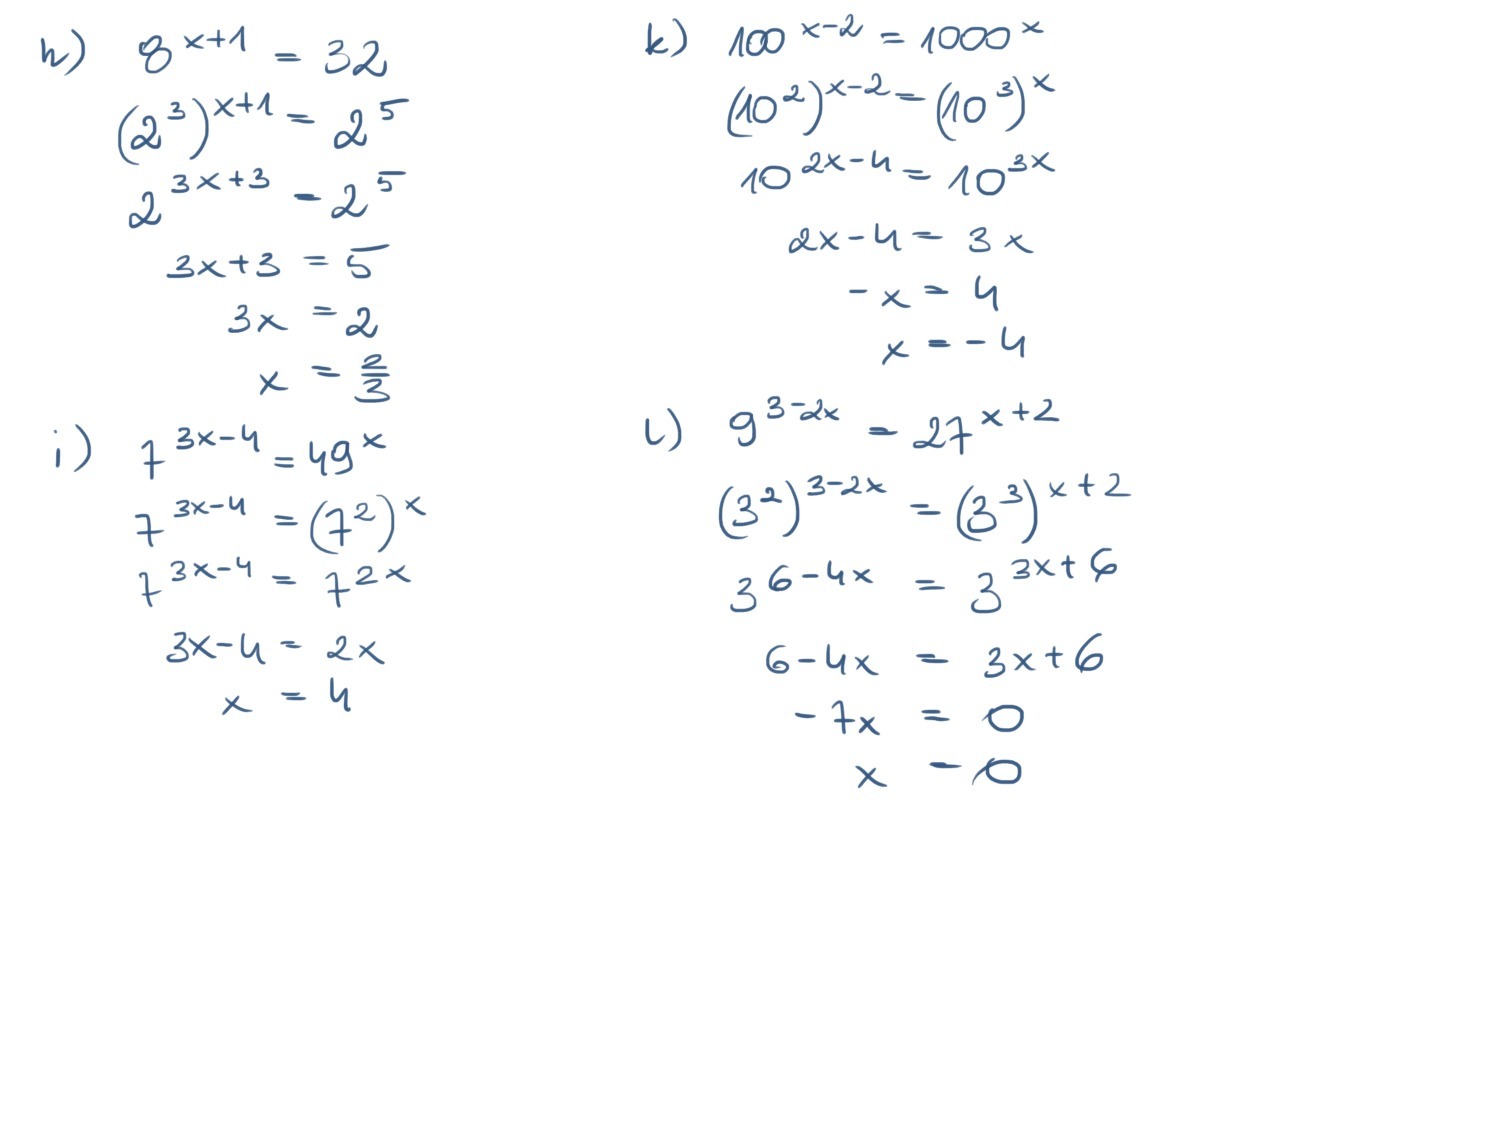 h) 8^{x+1} = 32
(2^3)^{x+1} = 2^5
2^{3x+3} = 2^5
3x+3 = 5
3x = 2
x = \frac{2}{3}
i) 7^{3x-4} = 49^x
7^{3x-4} = (7^2)^x
7^{3x-4} = 7^{2x}
3x-4 = 2x
x = 4
k) 100^{x-2} = 1000^x
(10^2)^{x-2} = (10^3)^x
10^{2x-4} = 10^{3x}
2x-4 = 3x
-x = 4
x = -4
l) 9^{3-2x} = 27^{x+2}
(3^2)^{3-2x} = (3^3)^{x+2}
3^{6-4x} = 3^{3x+6}
6-4x = 3x+6
-7x = 0
x = 0